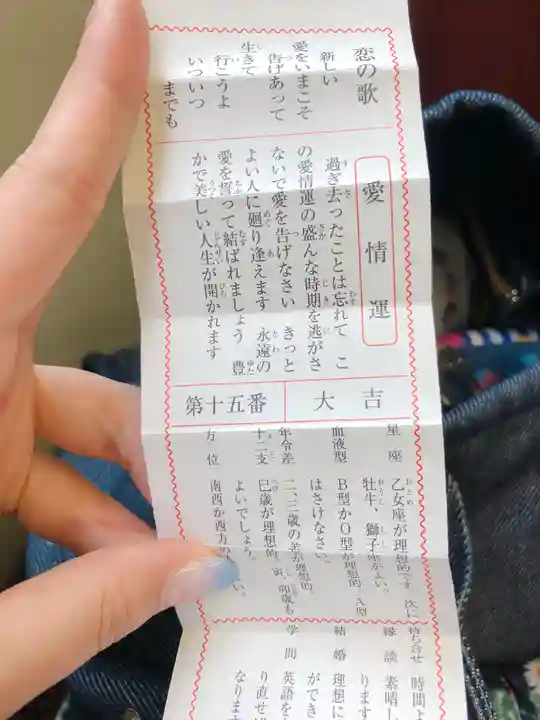 恋の歌
新しい
愛をいまこそ
告げあって
生きて
行こうよ
いついつ
までも
愛情運
過ぎ去ったことは忘れて こ
の愛情運の盛んな時期を逃がさ
ないで愛を告げなさい きっと
よい人に廻り逢えます 永遠の
愛を誓って結ばれましょう 豊
かで美しい人生が開かれます
大吉
第十五番
星座 乙女座が理想的です 次に
牡牛、獅子座がよい。
血液型 B型かO型が理想的 A型
はさけなさい。
年令差 二、三歳の差が理想的
十二支 巳歳が理想的 寅、卯歳も
よいでしょう。
方位 南西か西方の
い。
待ち合せ 時間よ
縁談 素晴し
ります
結婚 理想に
ができ
学問 英語を
り直せば
なります